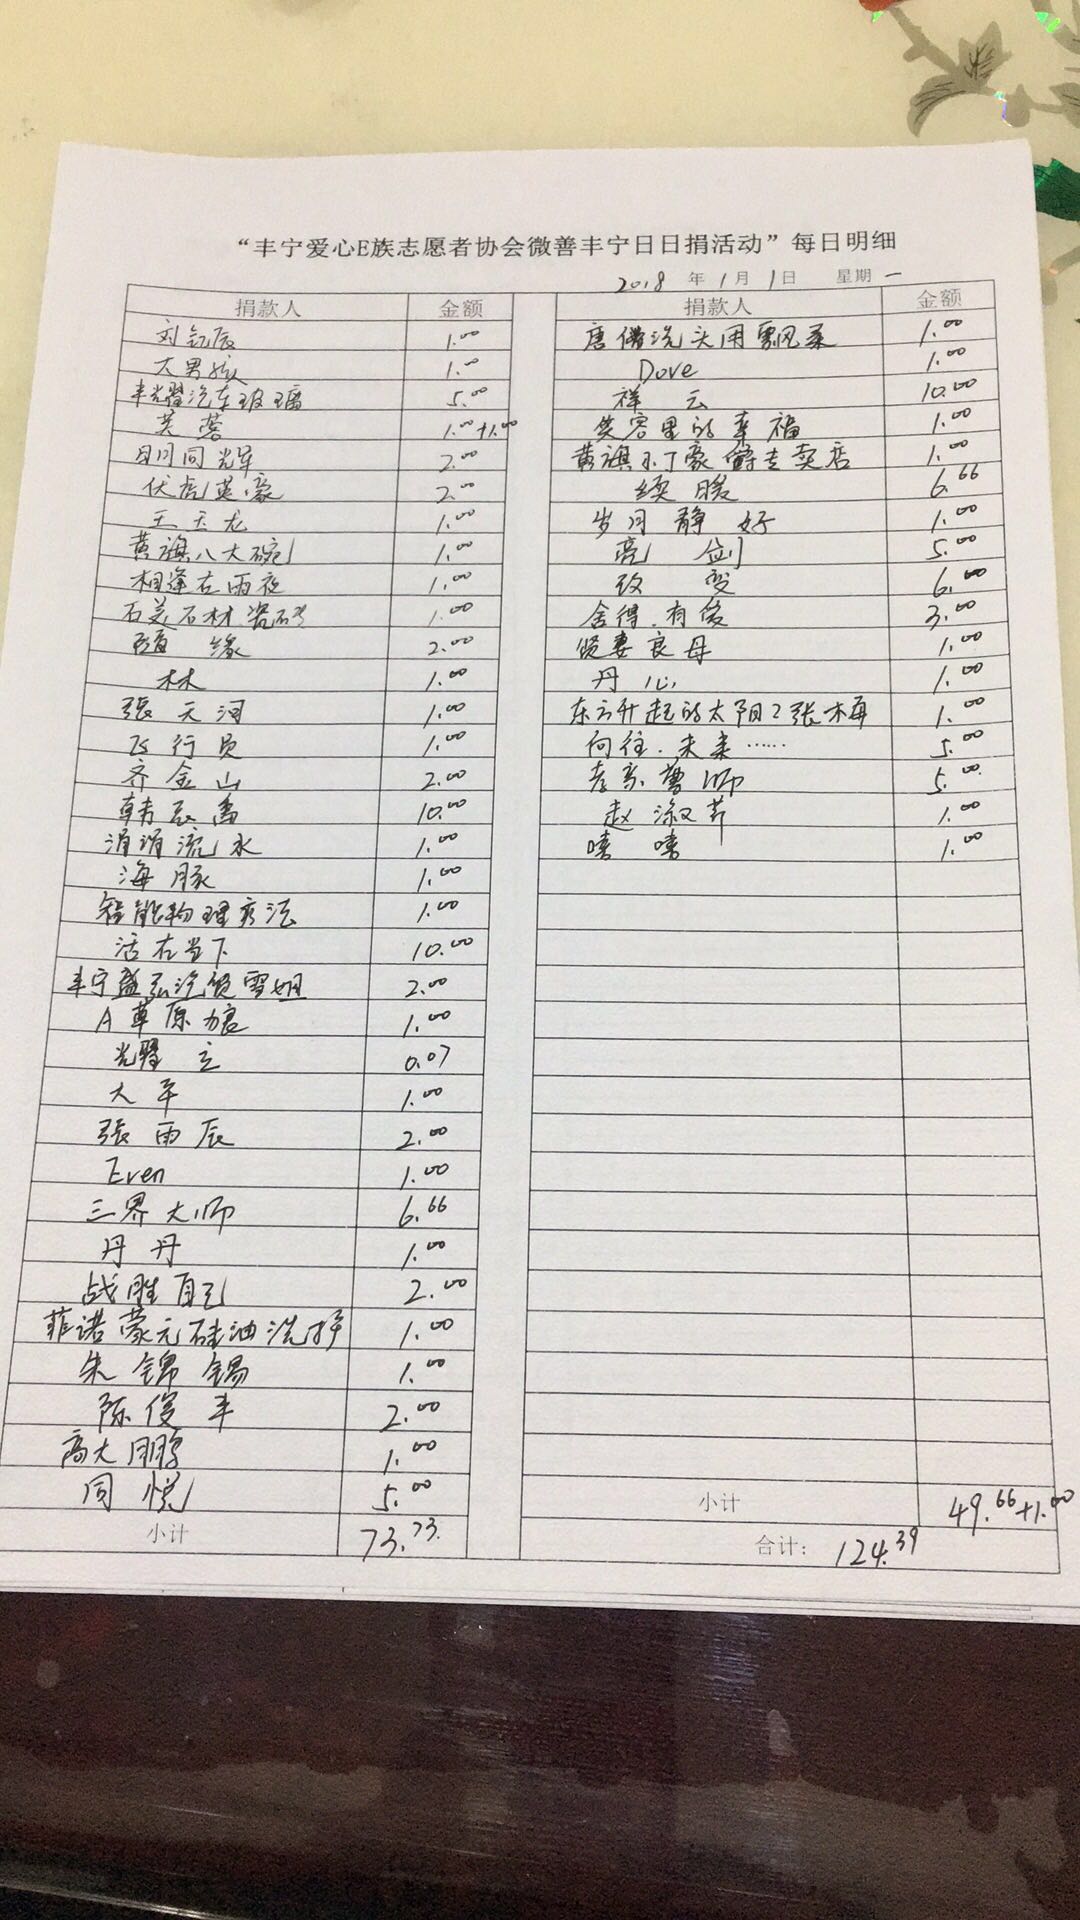 “丰宁爱心E族志愿者协会微善丰宁日日捐活动”每日明细
2018 年 1 月 1 日 星期 一
捐款人 金额
刘钰辰 1.00
大男孩 1.00
丰光耀汽车玻璃 5.00
芙蓉 1.00+1.00
日月同辉 2.00
伏虎英豪 2.00
王玉龙 1.00
黄旗八大碗 1.00
相逢在雨夜 1.00
石美石材瓷砖 1.00
颐缘 2.00
林 1.00
張天润 1.00
飞行员 1.00
齐金山 2.00
韩辰禹 10.00
涓涓流水 1.00
海豚 1.00
智能物理疗法 1.00
活在当下 10.00
丰宁盛弘汽贸雪姐 2.00
A草原狼 1.00
光耀 立 0.07
大平 1.00
張雨辰 2.00
Even 1.00
三界大师 6.66
丹丹 1.00
战胜自己 2.00
菲诺蒙元硅油洗护 1.00
朱锦锡 1.00
陈俊丰 2.00
高大鹏 1.00
同悦 5.00
小计 73.73
捐款人 金额
唐僧洗头用飘柔 1.00
Dove 1.00
祥云 10.00
笑容里的幸福 1.00
黄旗小丁豪爵专卖店 1.00
续暖 6.66
岁月静好 1.00
亮剑 5.00
改变 6.00
舍得.有爱 3.00
贤妻良母 1.00
丹心 1.00
东方升起的太阳 张梅 1.00
向往.未来…… 5.00
5.00
赵淑芹 1.00
嘻嘻 1.00
小计 49.66+1.00
合计： 124.39